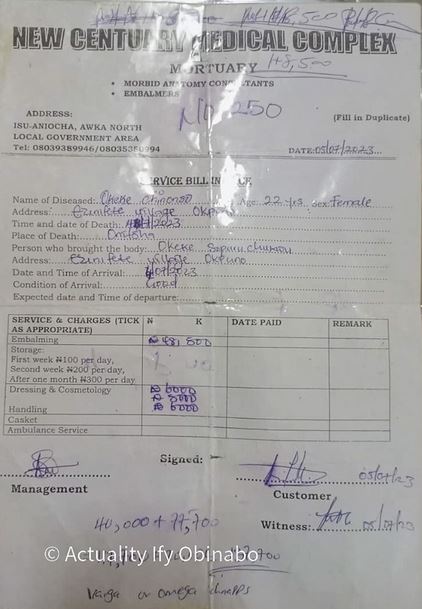 NEW CENTUARY MEDICAL COMPLEX
MORTUARY
48,500
• MORBID ANATOMY CONSULTANTS
• EMBALMERS
250
(Fill in Duplicate)
ADDRESS:
ISU-ANIOCHA, AWKA NORTH
LOCAL GOVERNMENT AREA
Tel: 08039389946/08035350994
DATE: 05/07/2023
SERVICE BILL
Name of Diseased: Okeke Age: 22 yrs Sex: Female
Address: Ezinifite village Okpuno
Time and date of Death: 2023
Place of Death: Onitsha
Person who brought the body: Okeke
Address: Ezinifite village Okpuno
Date and Time of Arrival: /07/2023
Condition of Arrival: Good
Expected Date and Time of departure:
SERVICE & CHARGES (TICK AS APPROPRIATE) ₦ K DATE PAID REMARK
Embalming ₦ 48,500
Storage:
First week ₦100 per day,
Second week ₦200 per day,
After one month ₦300 per day
Dressing & Cosmetology ₦ 6000
₦ 5000
Handling ₦ 6000
Casket
Ambulance Service
Signed:
05/07/23
Management
Customer
40,000 + 77,700
Witness: 05/07/23
© Actuality Ify Obinabo
700
or omega